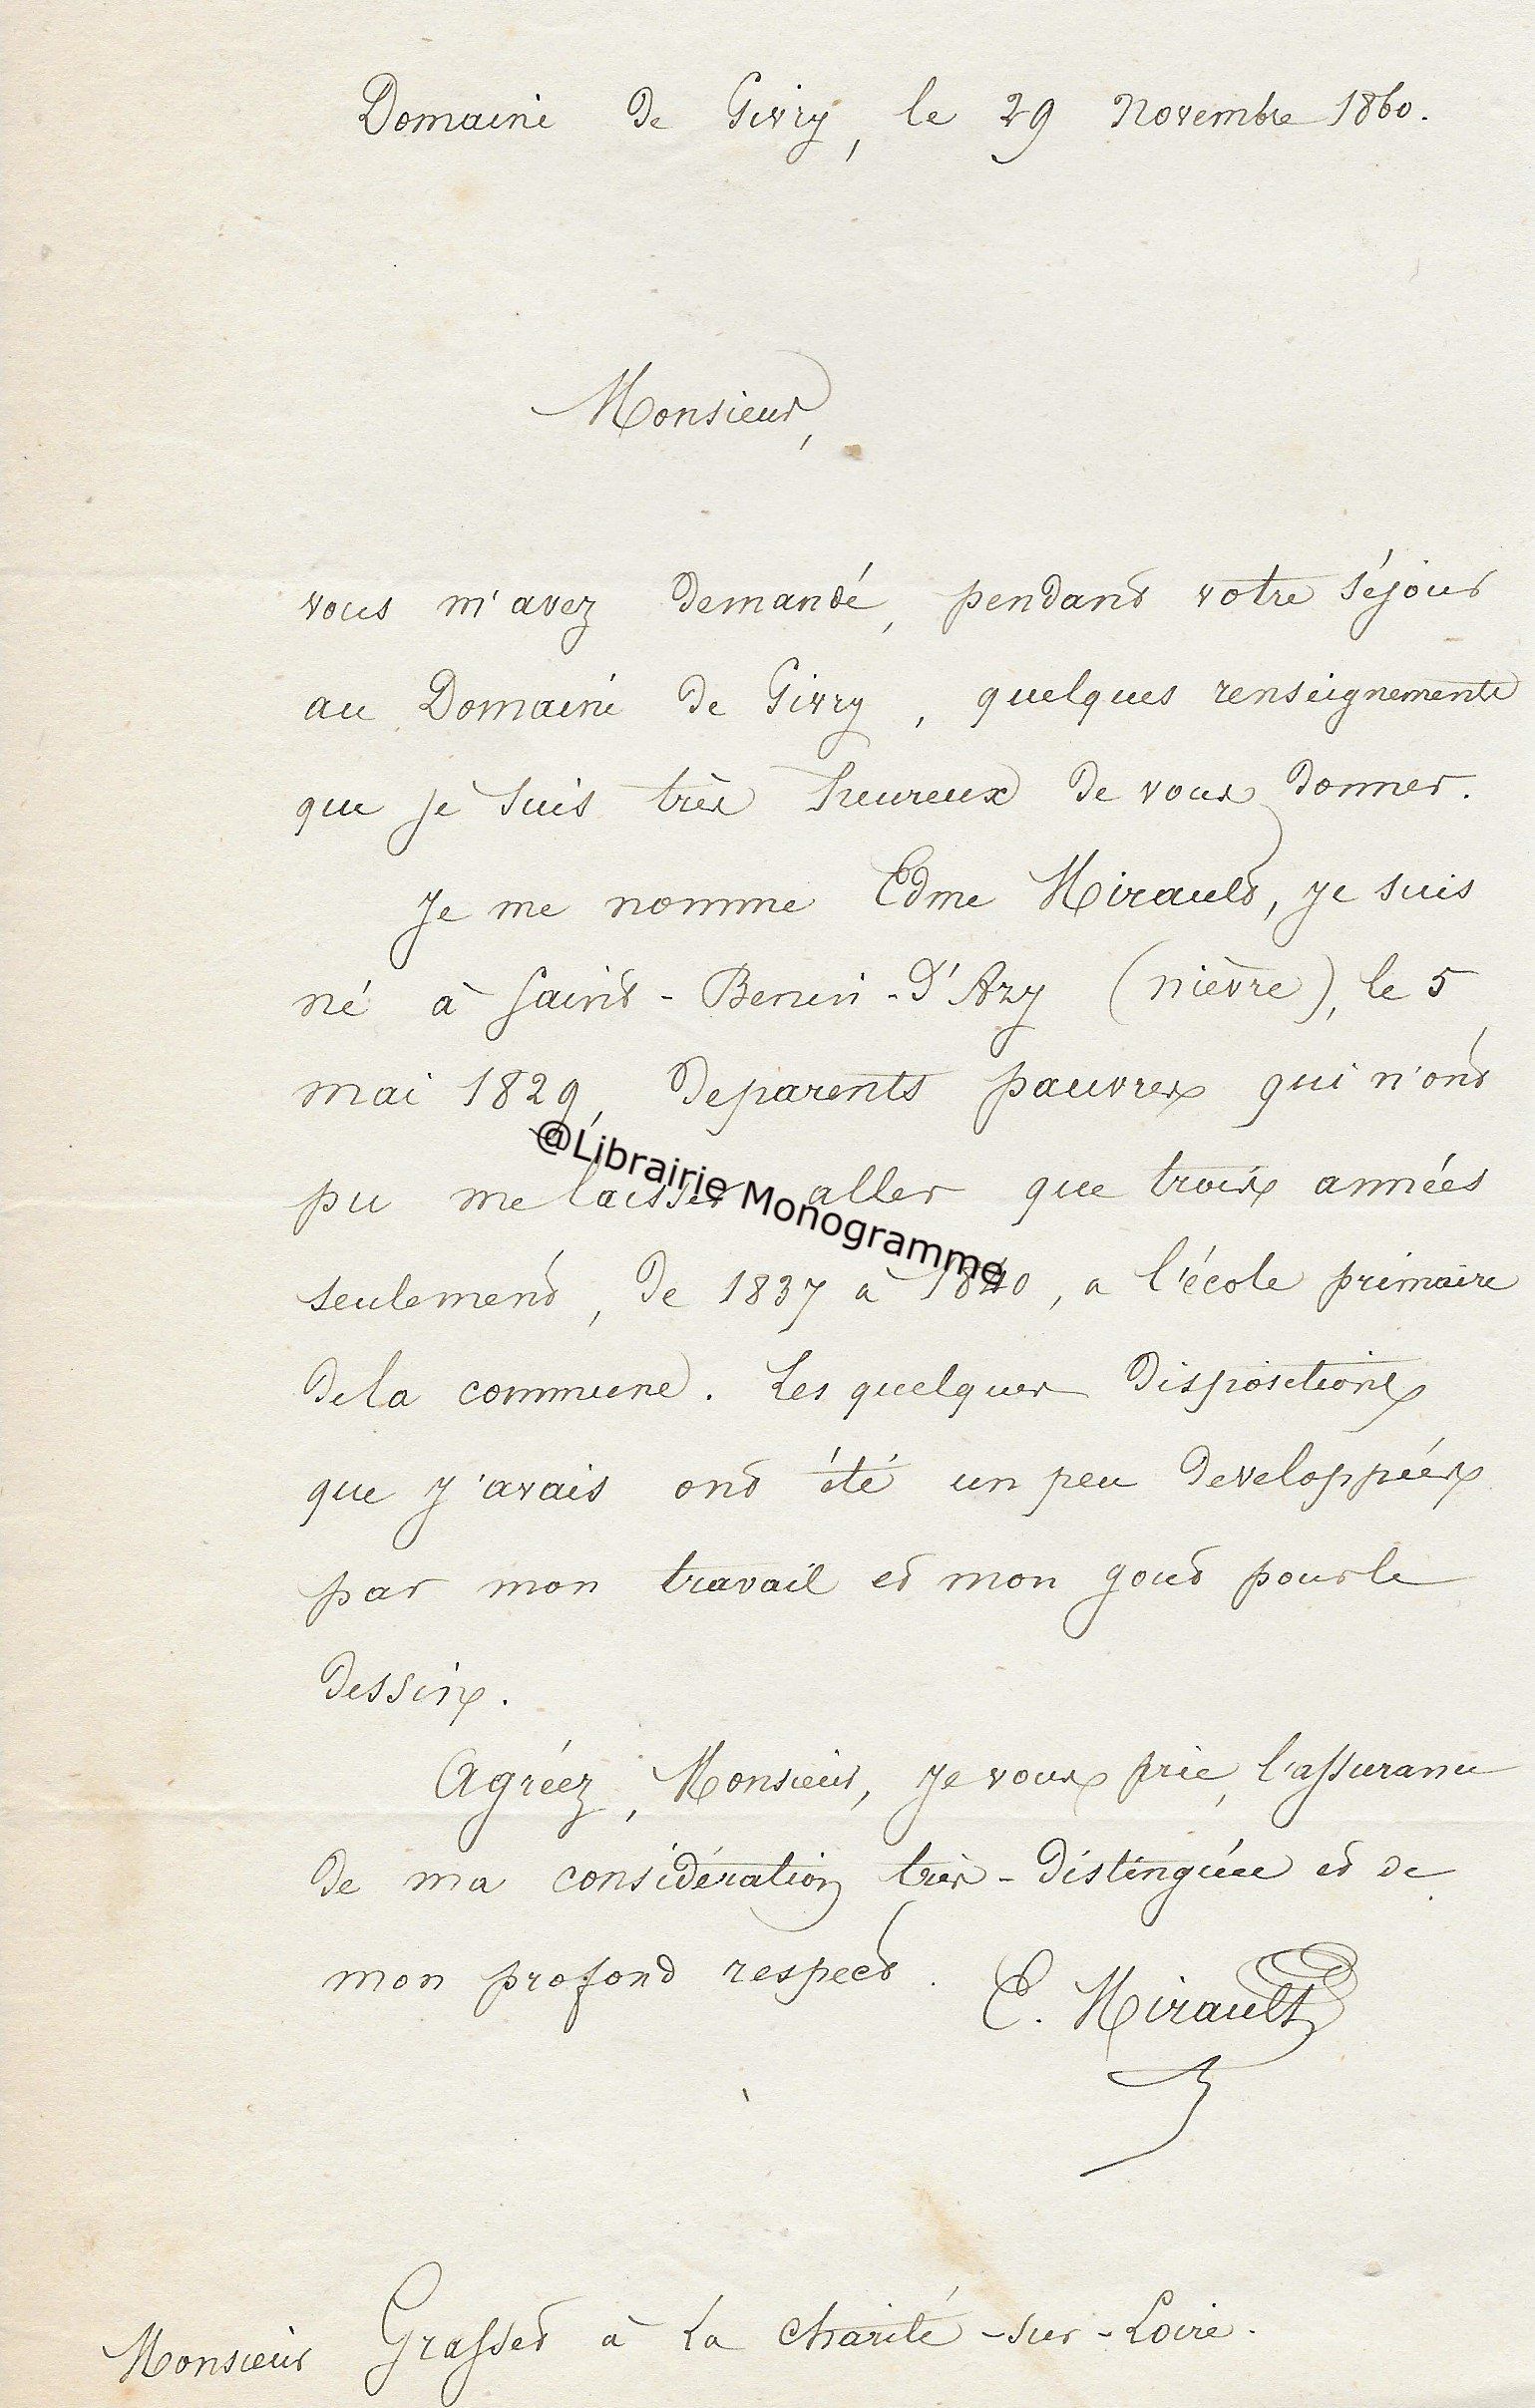 Domaine de Givry, le 29 Novembre 1860.
Monsieur,
vous m'avez demandé, pendant votre séjour
au Domaine de Givry, quelques renseignements
que je suis très heureux de vous donner.
Je me nomme Edme Mirault, je suis
né à Saint-Benin-d'Azy (nièvre), le 5
mai 1829, de parents pauvres qui n'ont
pu me laisser aller que trois années
@Librairie Monogramme
seulement, de 1837 à 1840, a l'école primaire
de la commune. Les quelques dispositions
que j'avais ont été un peu developpées
par mon travail et mon gout pour le
dessin.
Agréez, Monsieur, je vous prie, l'assurance
de ma considération très-distinguée et de
mon profond respect.
E. Mirault
Monsieur Grasset à La Charité-sur-Loire.